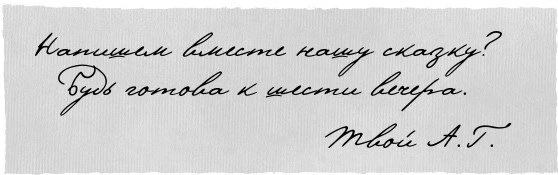 Напишем вместе нашу сказку?
Будь готова к шести вечера.
Твой А.Г.